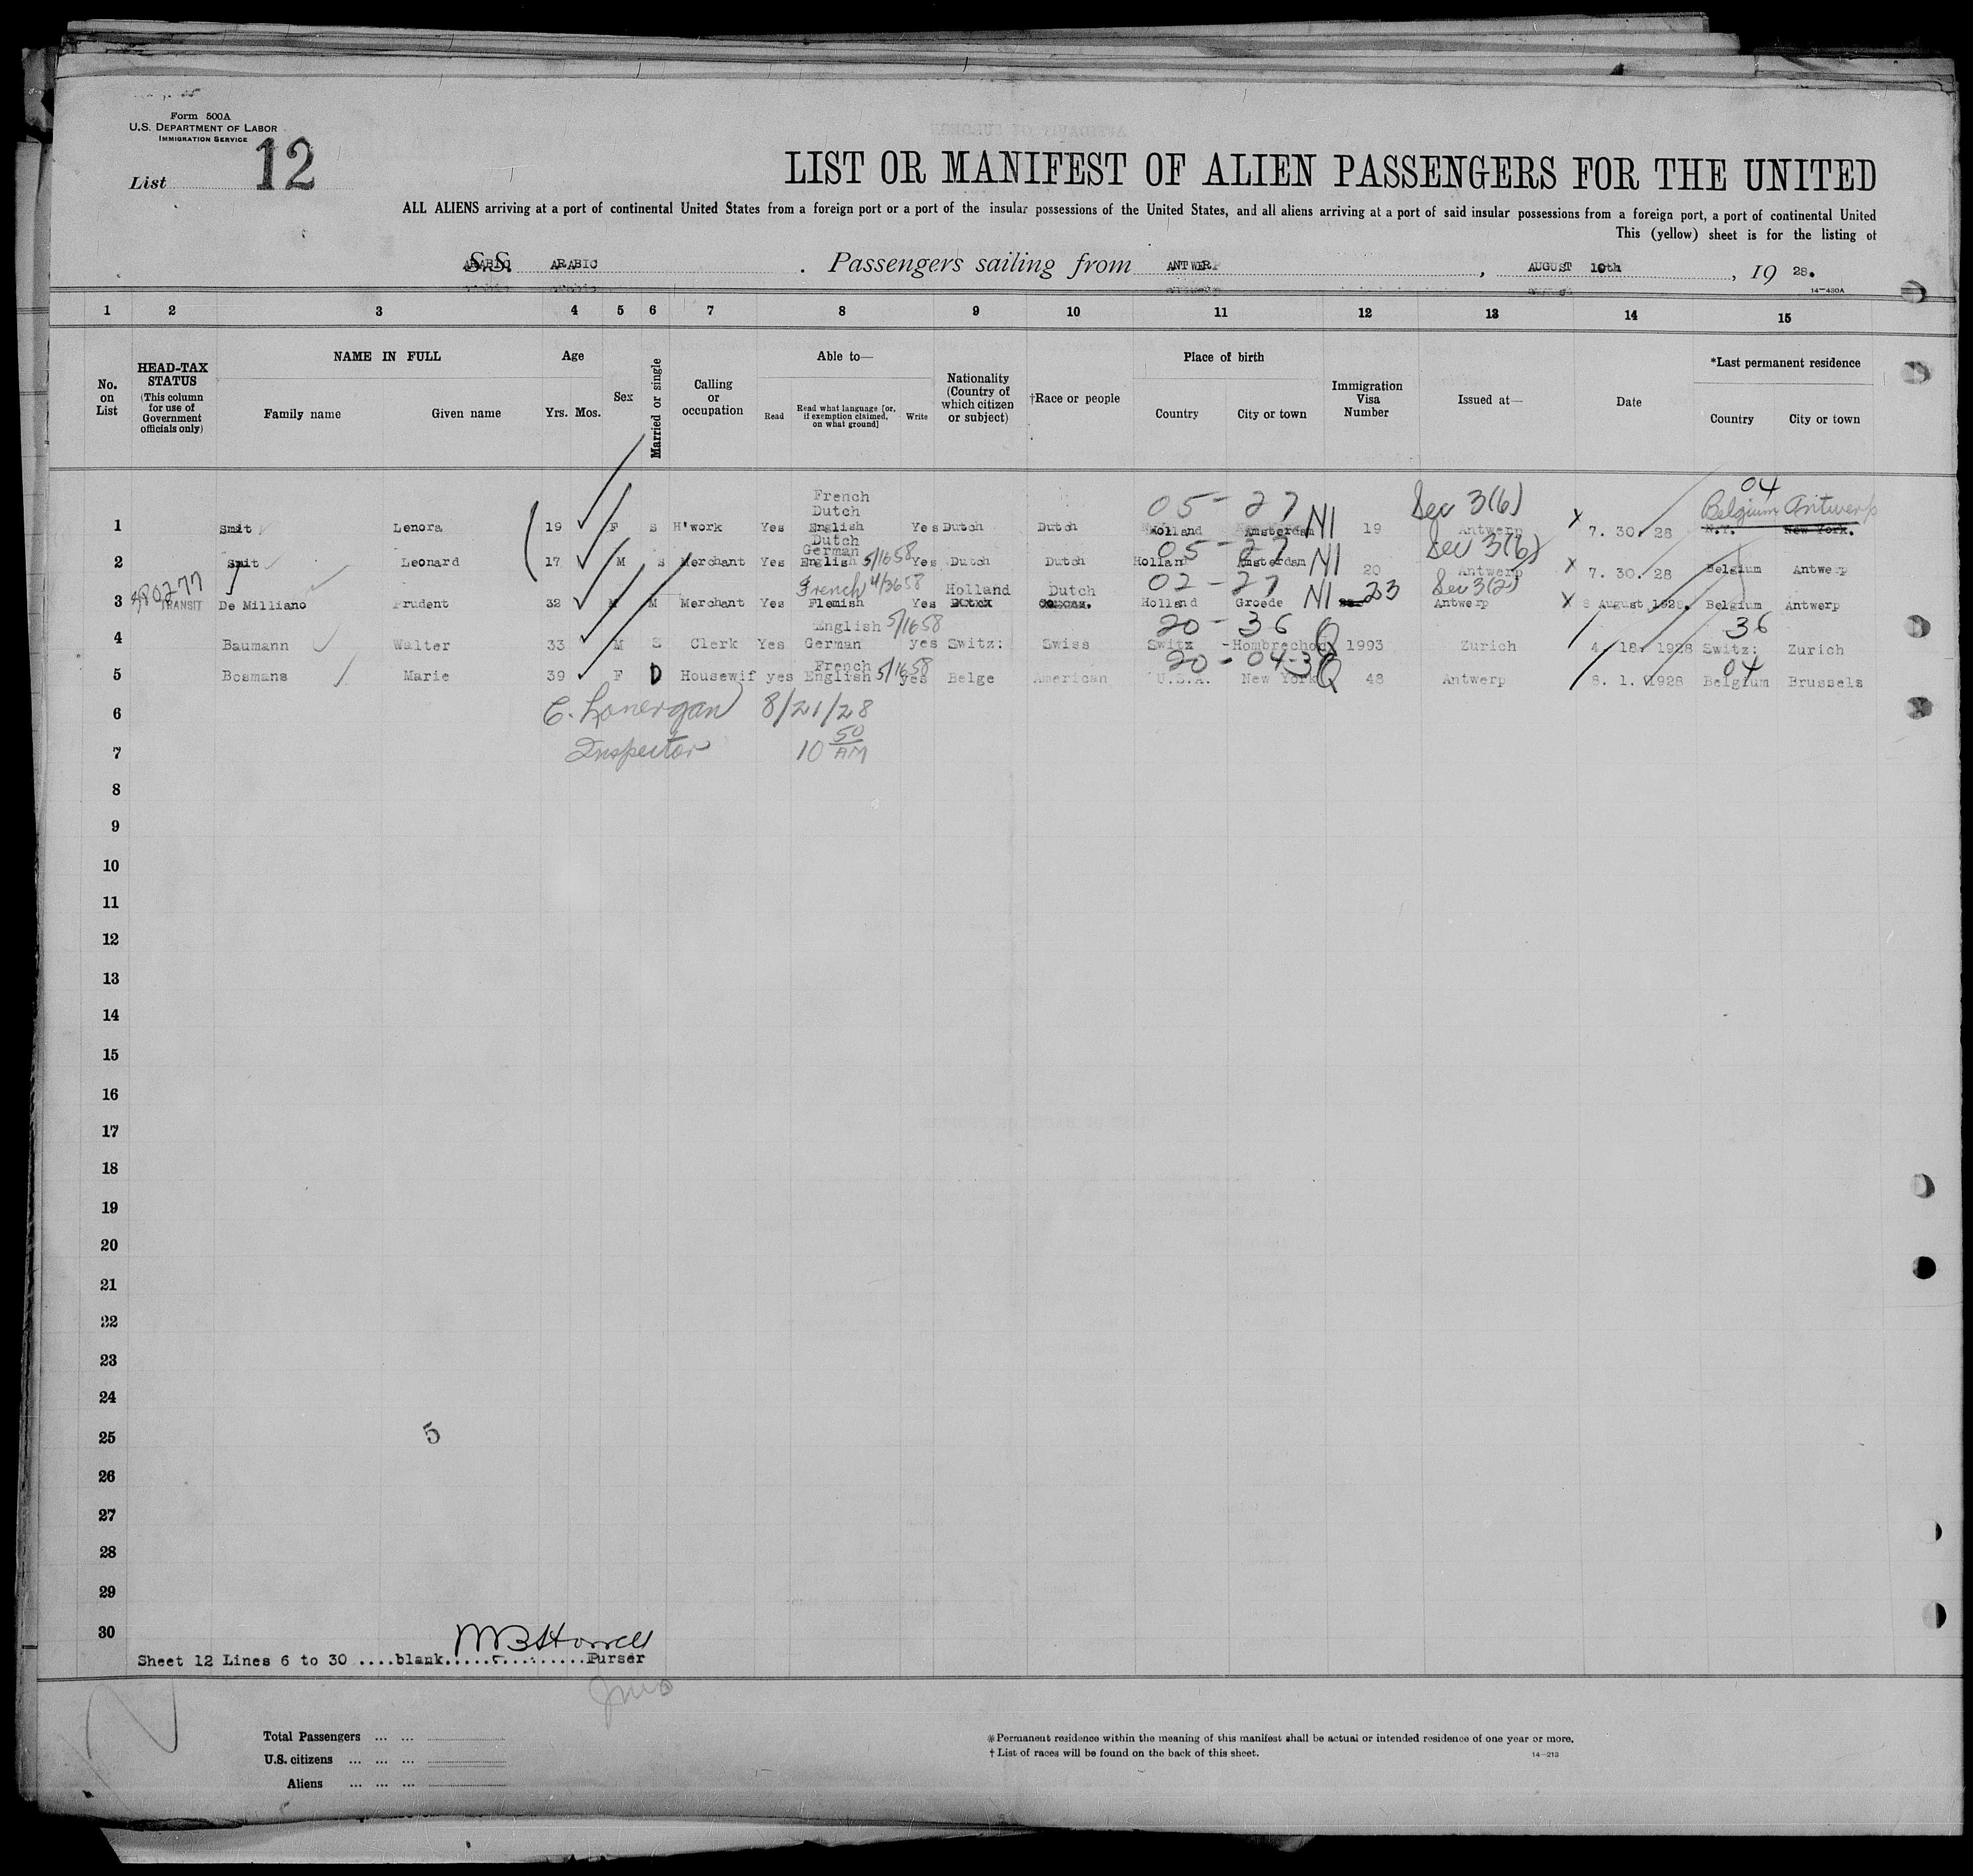 Form 500A
U.S. DEPARTMENT OF LABOR
IMMIGRATION SERVICE
List 12
LIST OR MANIFEST OF ALIEN PASSENGERS FOR THE UNITED
ALL ALIENS arriving at a port of continental United States from a foreign port or a port of the insular possessions of the United States, and all aliens arriving at a port of said insular possessions from a foreign port, a port of continental United
This (yellow) sheet is for the listing of
S.S. ARABIC . Passengers sailing from ANTWERP , AUGUST 10th , 19 28.
14-430A
1 2 3 4 5 6 7 8 9 10 11 12 13 14 15
No. on List
HEAD-TAX STATUS (This column for use of Government officials only)
NAME IN FULL
Family name Given name
Age
Yrs. Mos.
Sex
Married or single
Calling or occupation
Able to—
Read Read what language [or, if exemption claimed, on what ground] Write
Nationality (Country of which citizen or subject)
†Race or people
Place of birth
Country City or town
Immigration Visa Number
Issued at—
Date
*Last permanent residence
Country City or town
French 05 - 27 Sec 3(6) 04
Dutch Belgium Antwerp
1 Smit Lenora 19 F S H'work Yes English Yes Dutch Dutch Holland Amsterdam NI 19 Antwerp X 7. 30. 28 N.Y. New York.
Dutch 05 - 27 Sec 3(6)
German 5/1658
2 Smit Leonard 17 M S Merchant Yes English Yes Dutch Dutch Holland Amsterdam NI 20 Antwerp X 7. 30. 28 Belgium Antwerp
French 4/3658 Holland Dutch 02 - 27 Sec 3(2)
3 TRANSIT De Milliano Prudent 32 M M Merchant Yes Flemish Yes Dutch Holland Groede NI 23 Antwerp X 8 August 1928. Belgium Antwerp
English 5/1658 20 - 36 36
4 Baumann Walter 33 M S Clerk Yes German yes Switz: Swiss Switz Q 1993 Zurich 4. 18. 1928 Switz: Zurich
French 5/1658 20 - 04-3 04
5 Bosmans Marie 39 F D Housewif yes English yes Belge American U.S.A. New York Q 48 Antwerp 8. 1. 1928 Belgium Brussels
6 C. Lonergan 8/21/28
7 Inspector 10 50 AM
8
9
10
11
12
13
14
15
16
17
18
19
20
21
22
23
24
25 5
26
27
28
29
30
Sheet 12 Lines 6 to 30 ....blank.................Purser
Total Passengers ... ...
U.S. citizens ... ... ...
Aliens ... ... ...
* Permanent residence within the meaning of this manifest shall be actual or intended residence of one year or more.
† List of races will be found on the back of this sheet.
14-213